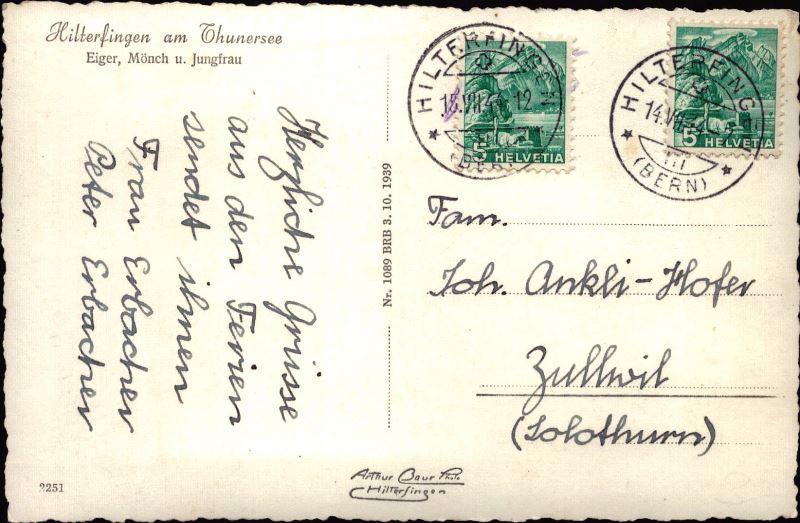 Hilterfingen am Thunersee
Eiger, Mönch u. Jungfrau
Herzliche Grüsse
aus den Ferien
sendet ihnen
Frau Erbacher
Peter Erbacher
2251
Nr. 1089 BRB 3. 10. 1939
Arthur Baur Photo
Hilterfingen
HILTERFINGEN
15.VII.44. 12
(BERN)
5 HELVETIA
HILTERFING
14.VII.44
(BERN)
5 HELVETIA
Fam.
Joh. Ankli-Hofer
Zullwil
(Solothurn)